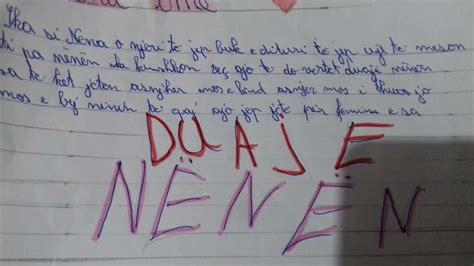 Ska si Nëna o njeri të jep buke edituri të jep ujë të meson
ti pa nënen ke humbson çeç gjo të do vertet duaje nënen
sa te ket jeton asnjeher mos e lënd asnjer mos i thuaj jo
mos e bj nënen të qaj ajo jep jetë për femin e sa
DUAJ E
NËNËN